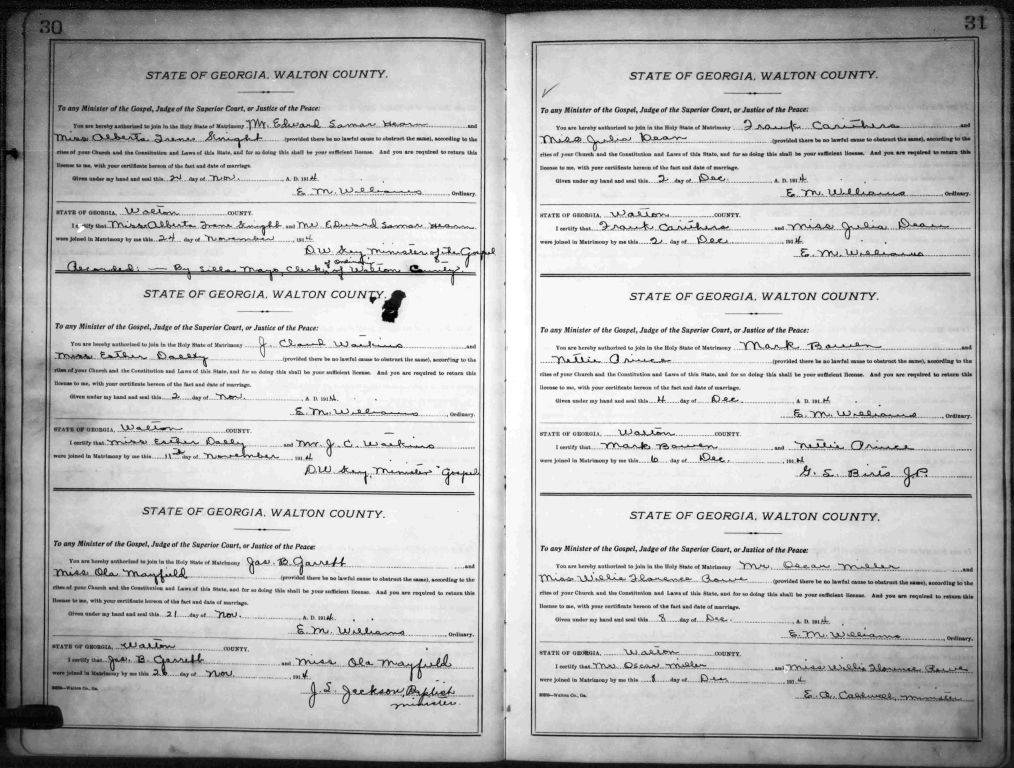 30
STATE OF GEORGIA, WALTON COUNTY.
To any Minister of the Gospel, Judge of the Superior Court, or Justice of the Peace:
You are hereby authorized to join in the Holy State of Matrimony Mr. Edward Lamar Hearn and
Miss Alberta Irene Knight (provided there be no lawful cause to obstruct the same), according to the
rites of your Church and the Constitution and Laws of this State, and for so doing this shall be your sufficient license. And you are required to return this
license to me, with your certificate hereon of the fact and date of marriage.
Given under my hand and seal this 24 day of Nov. A. D. 1914
E. M. Williams, Ordinary.
STATE OF GEORGIA, Walton COUNTY.
I certify that Miss Alberta Irene Knight and Mr Edward Lamar Hearn
were joined in Matrimony by me this 24 day of November, 1914
D W Key Minister of the Gospel
Recorded:— By Silla Mayo, Clerk of Ordinary of Walton County
STATE OF GEORGIA, WALTON COUNTY.
To any Minister of the Gospel, Judge of the Superior Court, or Justice of the Peace:
You are hereby authorized to join in the Holy State of Matrimony J. Claud Watkins and
Miss Esther Dally (provided there be no lawful cause to obstruct the same), according to the
rites of your Church and the Constitution and Laws of this State, and for so doing this shall be your sufficient license. And you are required to return this
license to me, with your certificate hereon of the fact and date of marriage.
Given under my hand and seal this 2 day of Nov. A. D. 1914
E. M. Williams, Ordinary.
STATE OF GEORGIA, Walton COUNTY.
I certify that Miss Esther Dally and Mr. J. C. Watkins
were joined in Matrimony by me this 11th day of November, 1914
D W Key, Minister Gospel
STATE OF GEORGIA, WALTON COUNTY.
To any Minister of the Gospel, Judge of the Superior Court, or Justice of the Peace:
You are hereby authorized to join in the Holy State of Matrimony Jas. B. Garrett and
Miss Ola Mayfield (provided there be no lawful cause to obstruct the same), according to the
rites of your Church and the Constitution and Laws of this State, and for so doing this shall be your sufficient license. And you are required to return this
license to me, with your certificate hereon of the fact and date of marriage.
Given under my hand and seal this 21 day of Nov. A. D. 1914
E. M. Williams, Ordinary.
STATE OF GEORGIA, Walton COUNTY.
I certify that Jas. B. Garrett and Miss Ola Mayfield
were joined in Matrimony by me this 26 day of Nov, 1914
J. S. Jackson, Baptist
minister.
31
STATE OF GEORGIA, WALTON COUNTY.
To any Minister of the Gospel, Judge of the Superior Court, or Justice of the Peace:
You are hereby authorized to join in the Holy State of Matrimony Frank Caruthers and
Miss Julia Dean (provided there be no lawful cause to obstruct the same), according to the
rites of your Church and the Constitution and Laws of this State, and for so doing this shall be your sufficient license. And you are required to return this
license to me, with your certificate hereon of the fact and date of marriage.
Given under my hand and seal this 2 day of Dec. A. D. 1914
E. M. Williams, Ordinary.
STATE OF GEORGIA, Walton COUNTY.
I certify that Frank Caruthers and Miss Julia Dean
were joined in Matrimony by me this 2 day of Dec, 1914
E. M. Williams
STATE OF GEORGIA, WALTON COUNTY.
To any Minister of the Gospel, Judge of the Superior Court, or Justice of the Peace:
You are hereby authorized to join in the Holy State of Matrimony Mark Bowen and
Nettie Prince (provided there be no lawful cause to obstruct the same), according to the
rites of your Church and the Constitution and Laws of this State, and for so doing this shall be your sufficient license. And you are required to return this
license to me, with your certificate hereon of the fact and date of marriage.
Given under my hand and seal this 4 day of Dec. A. D. 1914
E. M. Williams, Ordinary.
STATE OF GEORGIA, Walton COUNTY.
I certify that Mark Bowen and Nettie Prince
were joined in Matrimony by me this 6 day of Dec., 1914
G. E. Birts J.P.
STATE OF GEORGIA, WALTON COUNTY.
To any Minister of the Gospel, Judge of the Superior Court, or Justice of the Peace:
You are hereby authorized to join in the Holy State of Matrimony Mr. Oscar Miller and
Miss Willie Florence Rowe (provided there be no lawful cause to obstruct the same), according to the
rites of your Church and the Constitution and Laws of this State, and for so doing this shall be your sufficient license. And you are required to return this
license to me, with your certificate hereon of the fact and date of marriage.
Given under my hand and seal this 8 day of Dec. A. D. 1914
E. M. Williams, Ordinary.
STATE OF GEORGIA, Walton COUNTY.
I certify that Mr Oscar Miller and Miss Willie Florence Rowe
were joined in Matrimony by me this 8 day of Dec, 1914
E. A. Caldwell, Minister